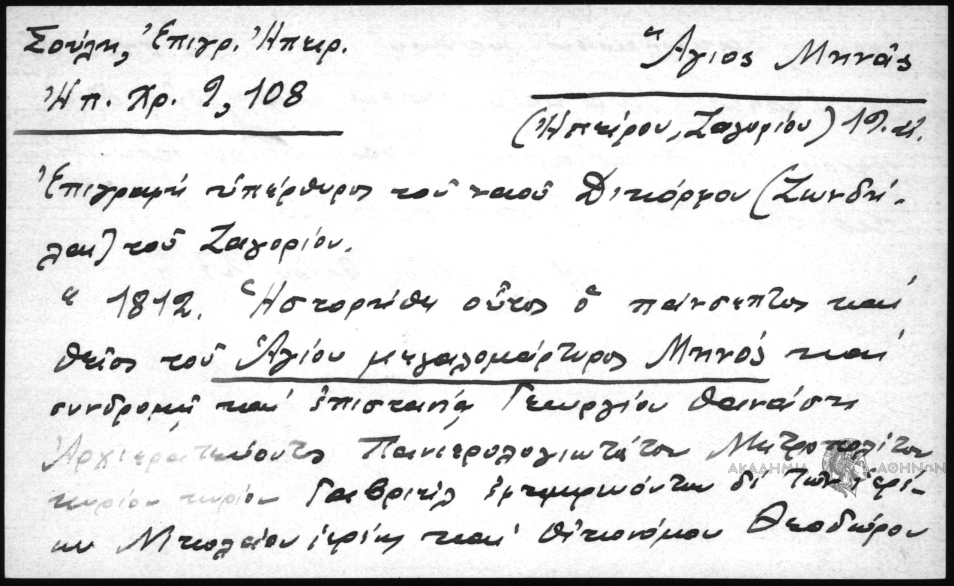 Σούλη, Ἐπιγρ. Ἠπειρ.
Ἠπ. Χρ. 9, 108
Ἅγιος Μηνᾶς
(Ἠπείρου, Ζαγορίου) 19. αἰ.
Ἐπιγραφή ὑπέρθυρος τοῦ ναοῦ
λας) τοῦ Ζαγορίου.
" 1812. Ἡστορήθη οὗτος ὁ πάνσεπτος καί
θεῖος τοῦ Ἁγίου μεγαλομάρτυρος Μηνᾶ καί
συνδρομῇ καί ἐπιστασίᾳ Γεωργίου
Ἀρχιερατεύοντος Πανιερολογιωτάτου Μητροπολίτου
κυρίου κυρίου Γαβριήλ ἐφημερευόντων δέ τῶν ἱερέ-
ων Νικολάου ἱερέως καί Οἰκονόμου Θεοδώρου
ΑΚΑΔΗΜΙΑ ΑΘΗΝΩΝ